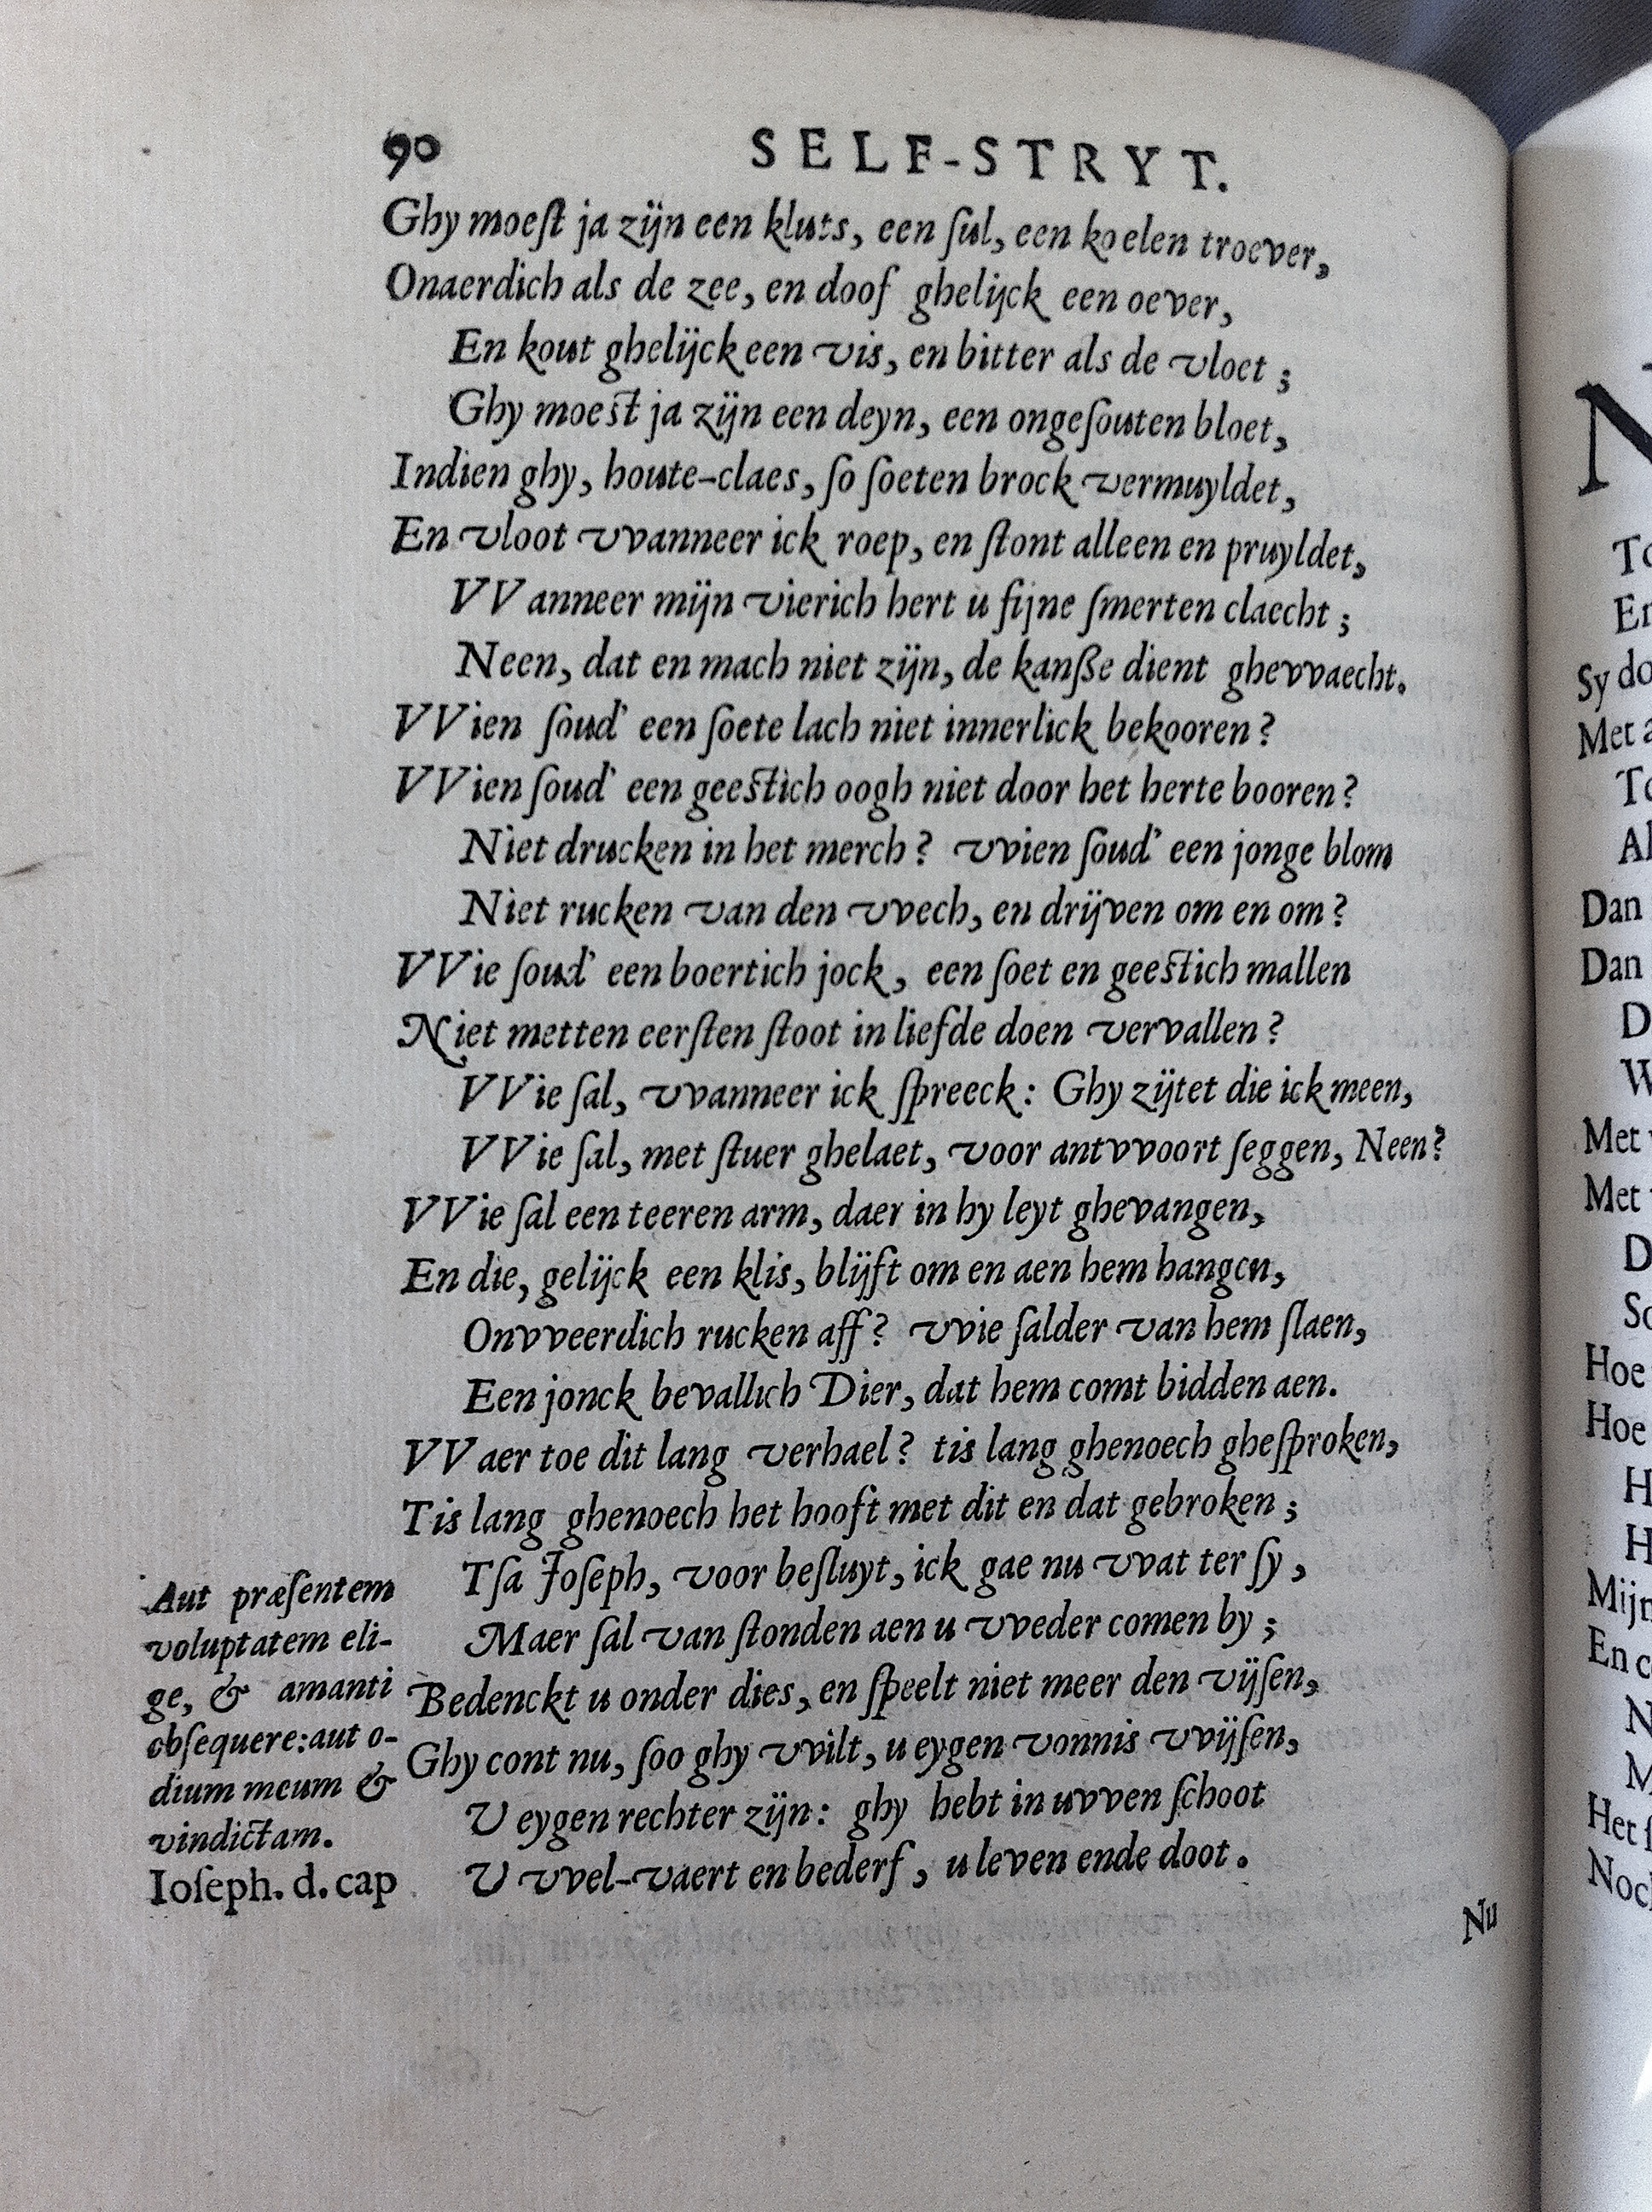 90 SELF-STRYT.
Ghy moeſt ja zijn een kluts, een ſul, een koelen troever,
Onaerdich als de zee, en doof ghelijck een oever,
En kout ghelijck een vis, en bitter als de vloet;
Ghy moeſt ja zijn een deyn, een ongeſouten bloet,
Indien ghy, houte-claes, ſo ſoeten brock vermuyldet,
En vloot vvanneer ick roep, en ſtont alleen en pruyldet,
VVanneer mijn vierich hert u ſijne ſmerten claecht;
Neen, dat en mach niet zijn, de kanße dient ghevvaecht.
VVien ſoud' een ſoete lach niet innerlick bekooren?
VVien ſoud' een geeſtich oogh niet door het herte booren?
Niet drucken in het merch? vvien ſoud' een jonge blom
Niet rucken van den vvech, en drijven om en om?
VVie ſoud' een boertich jock, een ſoet en geeſtich mallen
Niet metten eerſten ſtoot in liefde doen vervallen?
VVie ſal, vvanneer ick ſpreeck: Ghy zijtet die ick meen,
VVie ſal, met ſtuer ghelaet, voor antvvoort ſeggen, Neen?
VVie ſal een teeren arm, daer in hy leyt ghevangen,
En die, gelijck een klis, blijft om en aen hem hangen,
Onvveerdich rucken aff? vvie ſalder van hem ſlaen,
Een jonck bevallich Dier, dat hem comt bidden aen.
VVaer toe dit lang verhael? tis lang ghenoech gheſproken,
Tis lang ghenoech het hooft met dit en dat gebroken;
Tſa Joſeph, voor beſluyt, ick gae nu vvat ter ſy,
Maer ſal van ſtonden aen u vveder comen by;
Bedenckt u onder dies, en ſpeelt niet meer den vijſen,
Ghy cont nu, ſoo ghy vvilt, u eygen vonnis vvijſen,
U eygen rechter zijn: ghy hebt in uvven ſchoot
U vvel-vaert en bederf, u leven ende doot.
Aut præſentem
voluptatem eli-
ge, & amanti
obſequere: aut o-
dium meum &
vindictam.
Ioſeph. d. cap
Nu
N
To
En
Sy do
Met a
To
Al
Dan
Dan
D
W
Met
Met
D
So
Hoe
Hoe
H
H
Mijn
En
N
M
Het
Noch